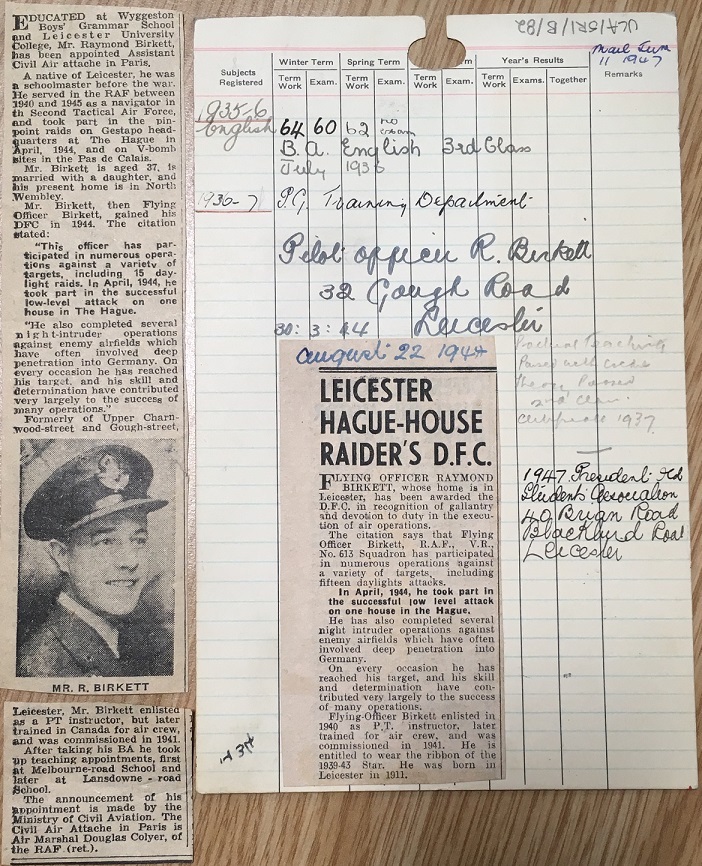 EDUCATED at Wyggeston
Boys' Grammar School
and Leicester University
College, Mr. Raymond Birkett,
has been appointed Assistant
Civil Air attache in Paris.
A native of Leicester, he was
a schoolmaster before the war.
He served in the RAF between
1940 and 1945 as a navigator in
th Second Tactical Air Force,
and took part in the pin-
point raids on Gestapo head-
quarters at The Hague in
April, 1944, and on V-bomb
sites in the Pas de Calais.
Mr. Birkett is aged 37, is
married with a daughter, and
his present home is in North
Wembley.
Mr. Birkett, then Flying
Officer Birkett, gained his
DFC in 1944. The citation
stated:
"This officer has par-
ticipated in numerous opera-
tions against a variety of
targets, including 15 day-
light raids. In April, 1944, he
took part in the successful
low-level attack on one
house in The Hague.
"He also completed several
night-intruder operations
against enemy airfields which
have often involved deep
penetration into Germany. On
every occasion he has reached
his target, and his skill and
determination have contributed
very largely to the success of
many operations."
Formerly of Upper Charn-
wood-street and Gough-street,
MR. R. BIRKETT
Leicester, Mr. Birkett enlisted
as a PT instructor, but later
trained in Canada for air crew,
and was commissioned in 1941.
After taking his BA he took
up teaching appointments, first
at Melbourne-road School and
later at Lansdowne-road
School.
The announcement of his
appointment is made by the
Ministry of Civil Aviation. The
Civil Air Attache in Paris is
Air Marshal Douglas Colyer, of
the RAF (ret.).
ULA/SR1/B/82
11 1947
Subjects Registered
Winter Term Spring Term m Year's Results
Term Work Exam. Term Work Exam. Term Work Exams. Together Remarks
1935-6
English 64 60 62 no exam
B.A. English 3rd Class
July 1936
1936-7 P.G. Training Department
Pilot officer R. Birkett
32 Gough Road
30:3:44 Leicester
Practical Teaching
Passed with credit
theory Passed
2nd class
certificate 1937
1947 President Old
Students Association
40 Bryan Road
Blackbird Road
Leicester
August 22 1944
LEICESTER
HAGUE-HOUSE
RAIDER'S D.F.C.
FLYING OFFICER RAYMOND
BIRKETT, whose home is in
Leicester, has been awarded the
D.F.C. in recognition of gallantry
and devotion to duty in the execu-
tion of air operations.
The citation says that Flying
Officer Birkett, R.A.F., V.R.,
No. 613 Squadron has participated
in numerous operations against
a variety of targets, including
fifteen daylights attacks.
In April, 1944, he took part in
the successful low level attack
on one house in the Hague.
He has also completed several
night intruder operations against
enemy airfields which have often
involved deep penetration into
Germany.
On every occasion he has
reached his target, and his skill
and determination have con-
tributed very largely to the success
of many operations.
Flying-Officer Birkett enlisted in
1940 as P.T. instructor, later
trained for air crew, and was
commissioned in 1941. He is
entitled to wear the ribbon of the
1939-43 Star. He was born in
Leicester in 1911.